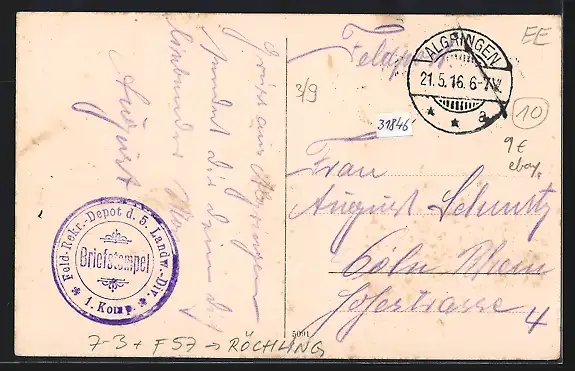 Feldpost
ALGRINGEN
21.5.16. 6-7 V.
* * a
EE
3/9
31846
10
9 €
ebay
Frau
August Schmitz
Cöln Rhein
4
Gruss aus Algringen
sendet dir dein dich
liebender
August
Feld-Rekr.-Depot d. 5. Landw.-Div.
Briefstempel
* 1. Komp. *
5001
7-3 + F57 → RÖCHLING